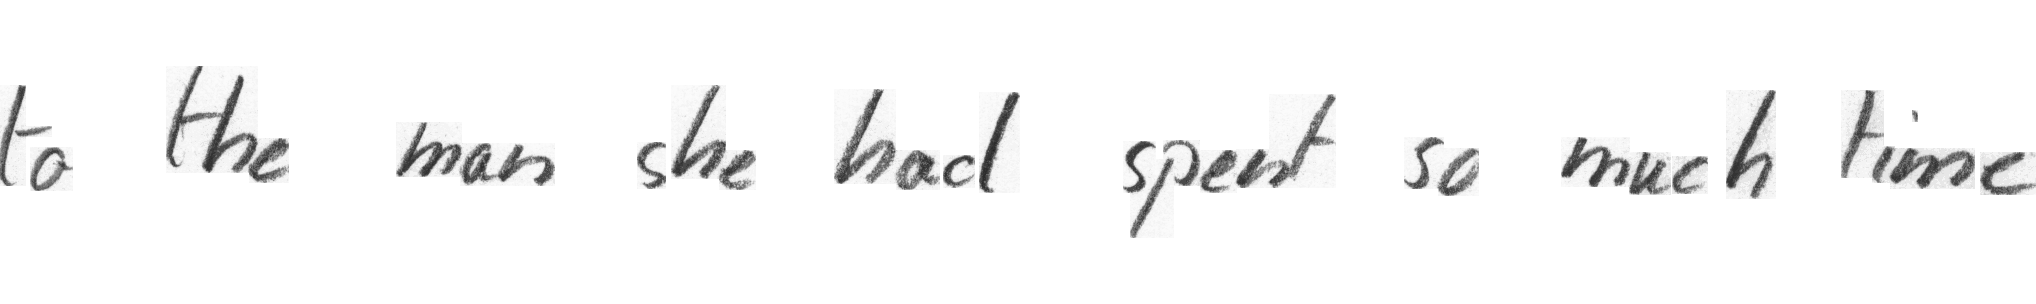 to the man she had spent so much time